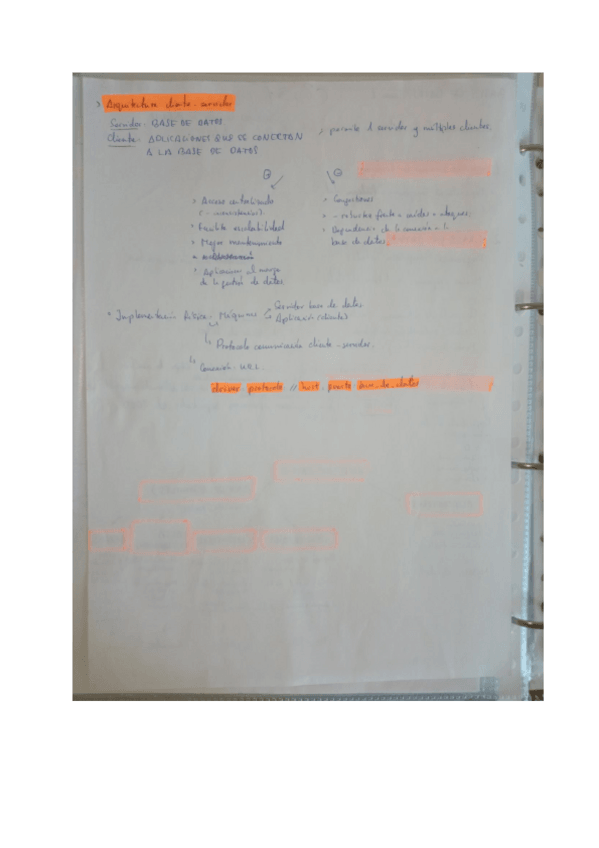 > Arquitectura cliente-servidor
Servidor: BASE DE DATOS
Cliente: APLICACIONES QUE SE CONECTAN
A LA BASE DE DATOS
, permite 1 servidor y múltiples clientes.
+
• Acceso centralizado
• Facilita escalabilidad
• Mejor mantenimiento
• Aplicaciones al margen
de la gestión de datos
-
• Congestiones
• - robustez frente a caídas o ataques.
• Dependencia de la conexión a la
base de datos.
• Implementación física: Máquinas
Servidor base de datos
Aplicación (cliente)
↳ Protocolo comunicación cliente-servidor.
↳ Conexión URL.
driver protocolo // host puerto nom_de_datos